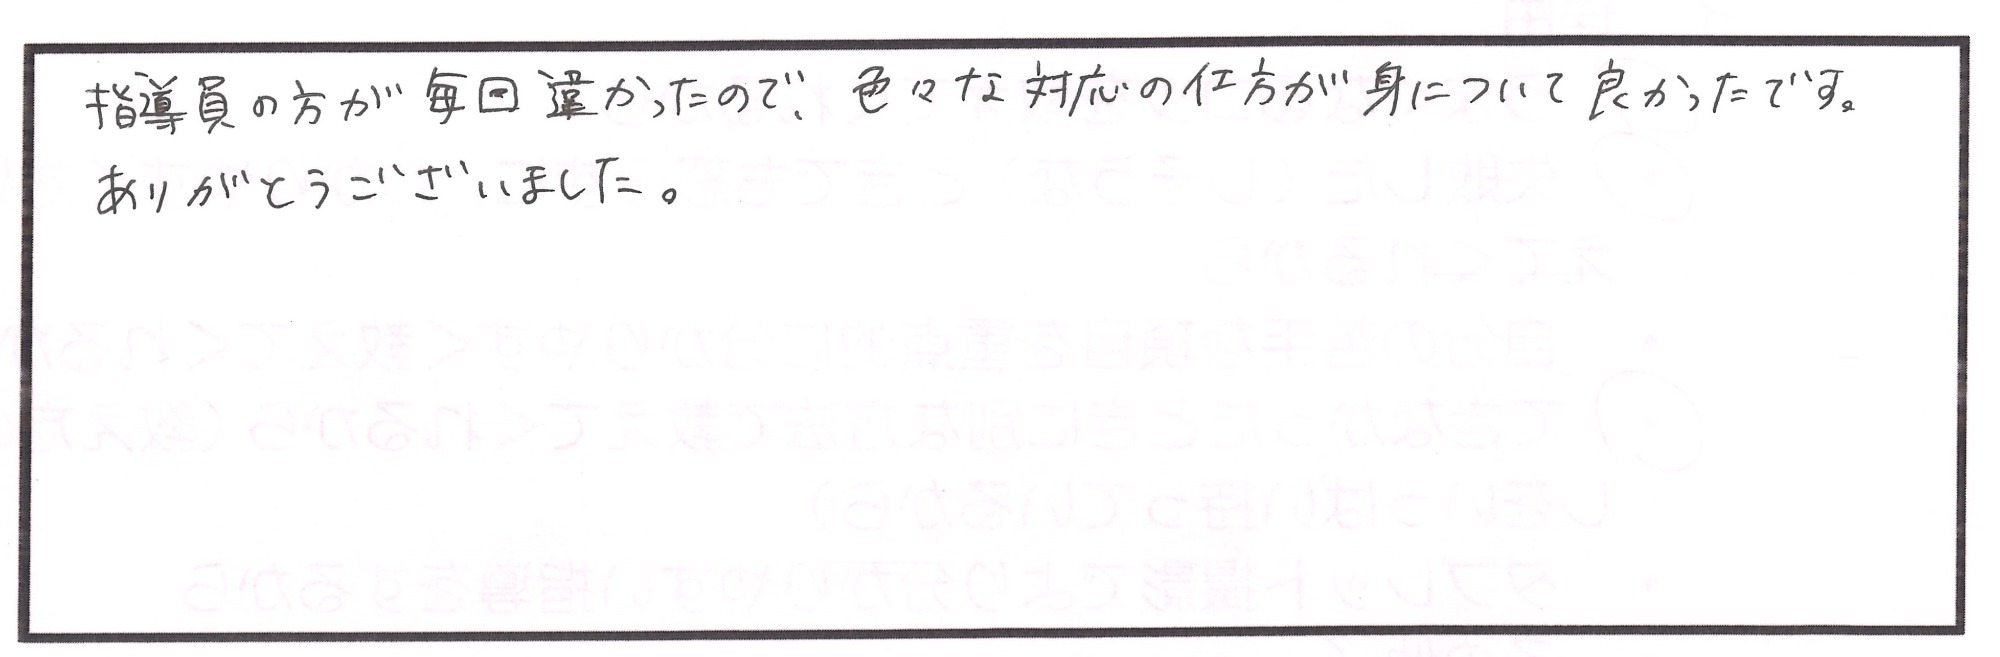 指導員の方が毎回違かったので、色々な対応の仕方が身について良かったです。
ありがとうございました。